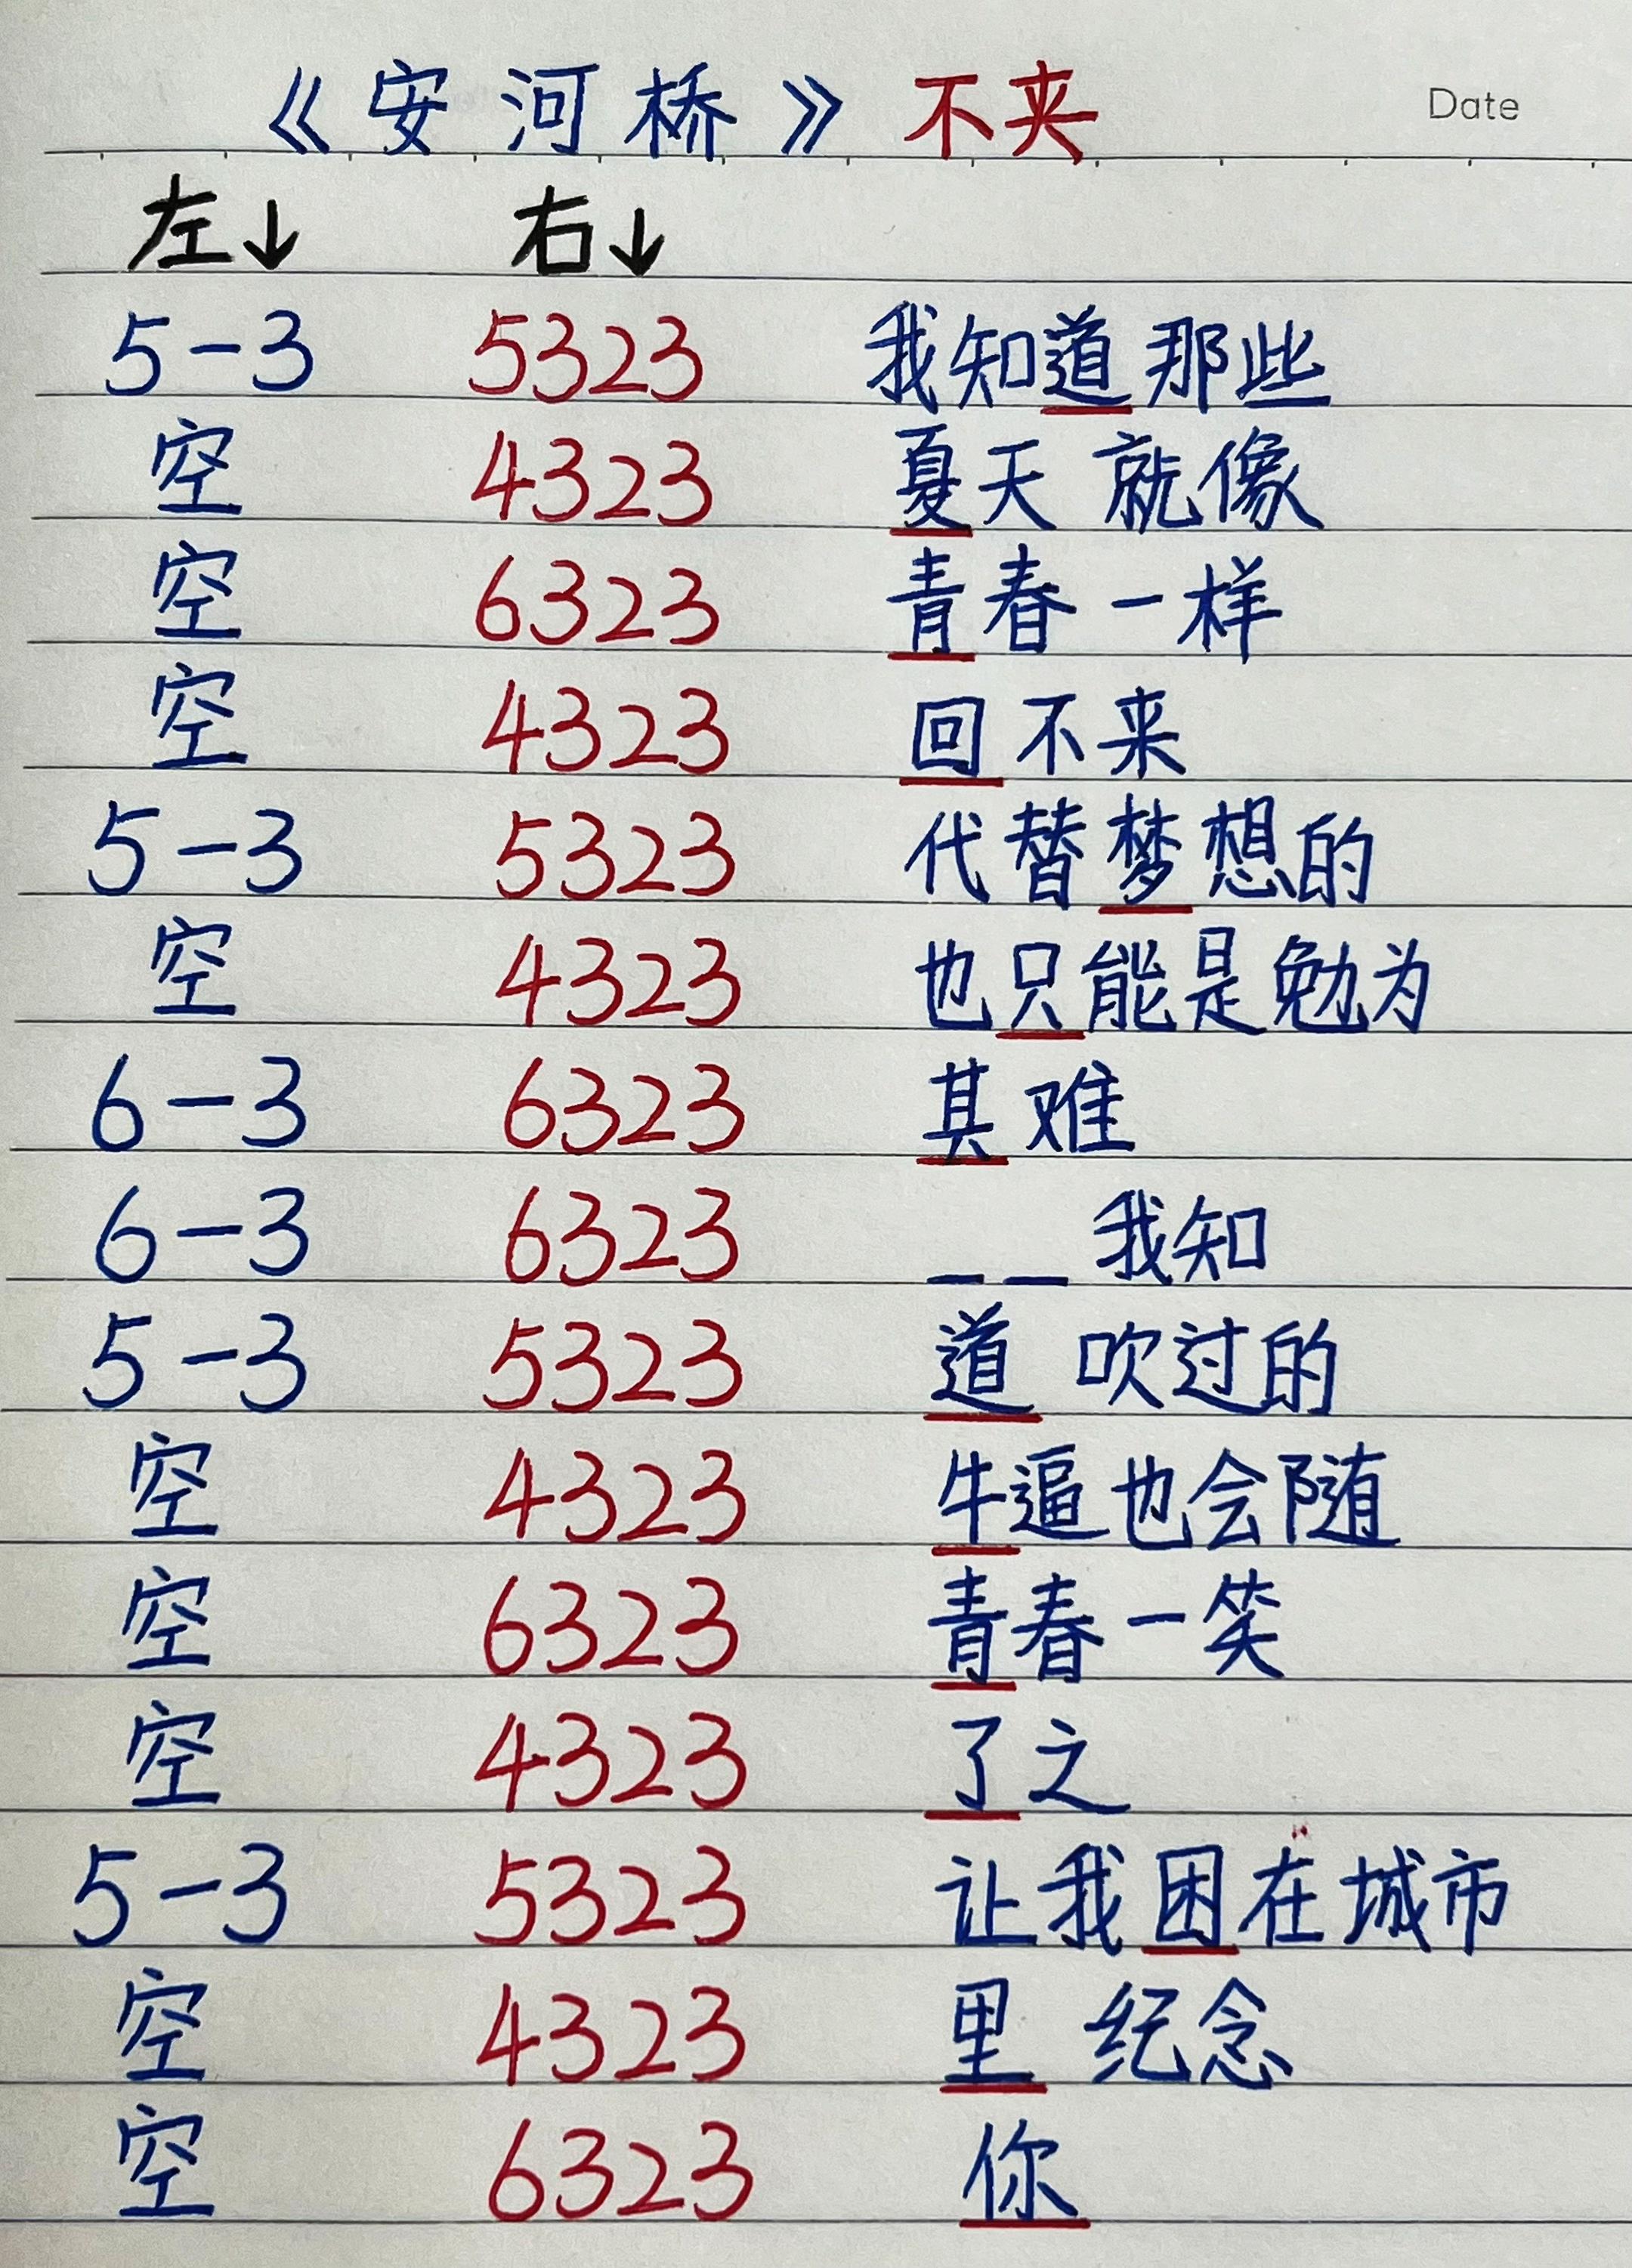 《安河桥》不夹 Date
左↓ 右↓
5-3 5323 我知道那些
空 4323 夏天 就像
空 6323 青春一样
空 4323 回不来
5-3 5323 代替梦想的
空 4323 也只能是勉为
6-3 6323 其难
6-3 6323 __我知
5-3 5323 道 吹过的
空 4323 牛逼也会随
空 6323 青春一笑
空 4323 了之
5-3 5323 让我困在城市
空 4323 里 纪念
空 6323 你